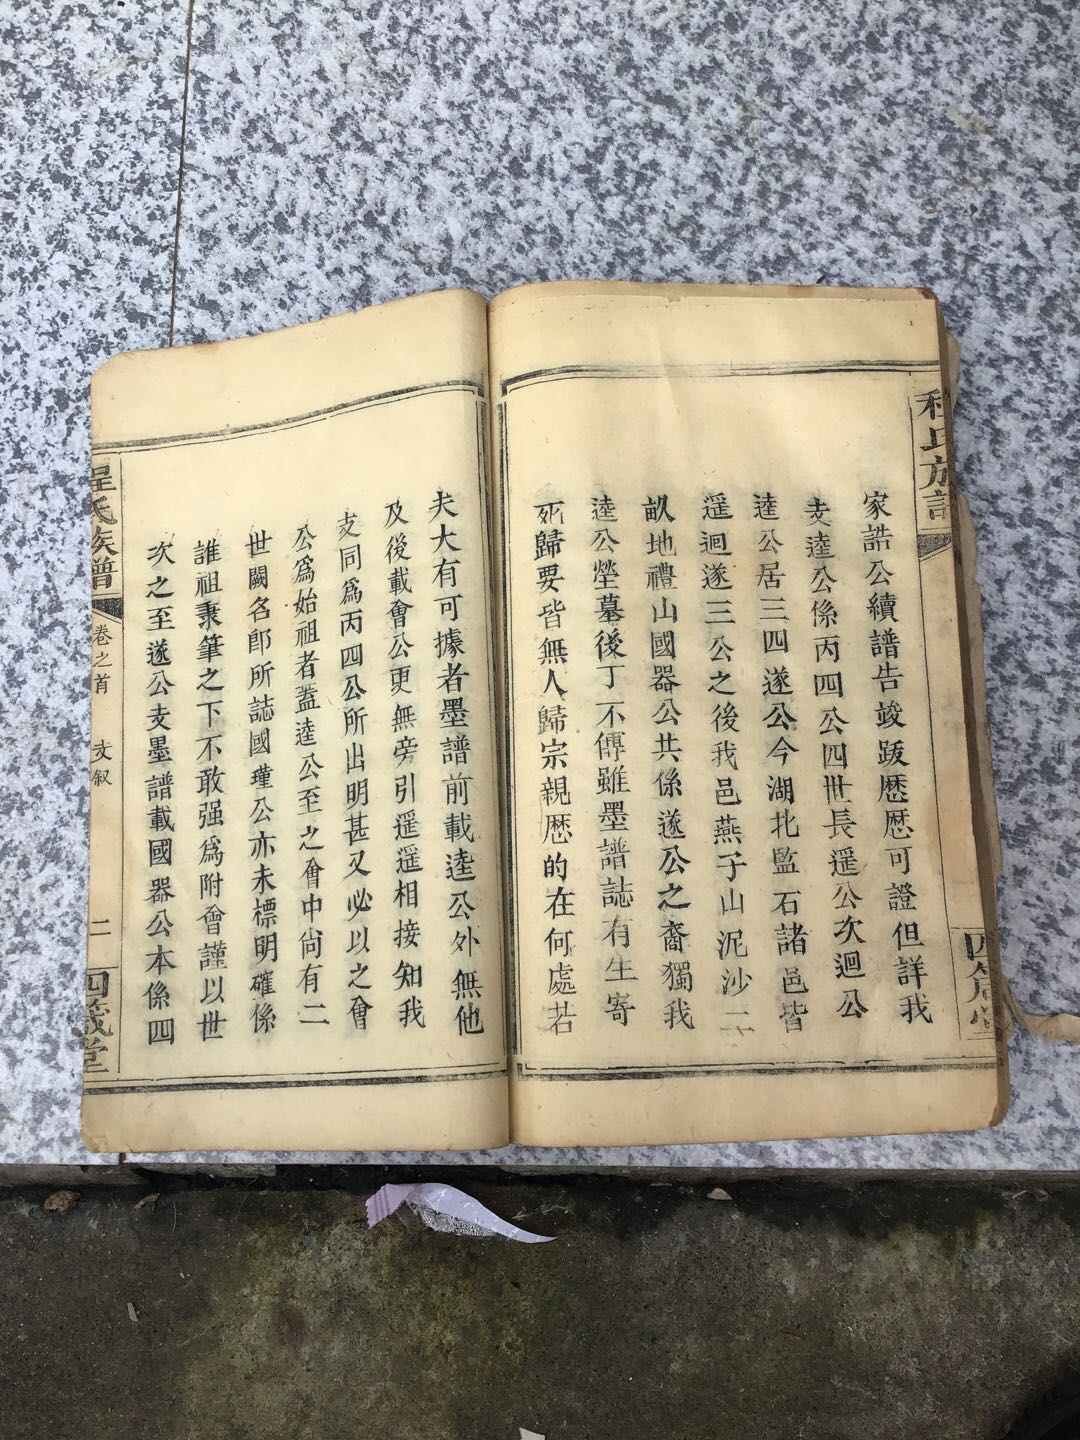 程氏族譜
四箴堂
家誥公續譜告竣跋歷歷可證但詳我
支逵公係丙四公四世長暹公次迴公
逵公居三四遂公今湖北監石諸邑皆
暹迴遂三公之後我邑燕子山泥沙二
畝地禮山國器公共係遂公之裔獨我
逵公塋墓後丁不傳雖墨譜誌有生寄
死歸要皆無人歸宗親歷的在何處若
夫大有可據者墨譜前載逵公外無他
及後載會公更無旁引暹暹相接知我
支同為丙四公所出明甚又必以之會
公為始祖者蓋逵公至之會中尚有二
世闕名郎所誌國瑾公亦未標明確係
誰祖秉筆之下不敢强為附會謹以世
次之至遂公支墨譜載國器公本係四
程氏族譜
卷之首
支叙
二
四箴堂